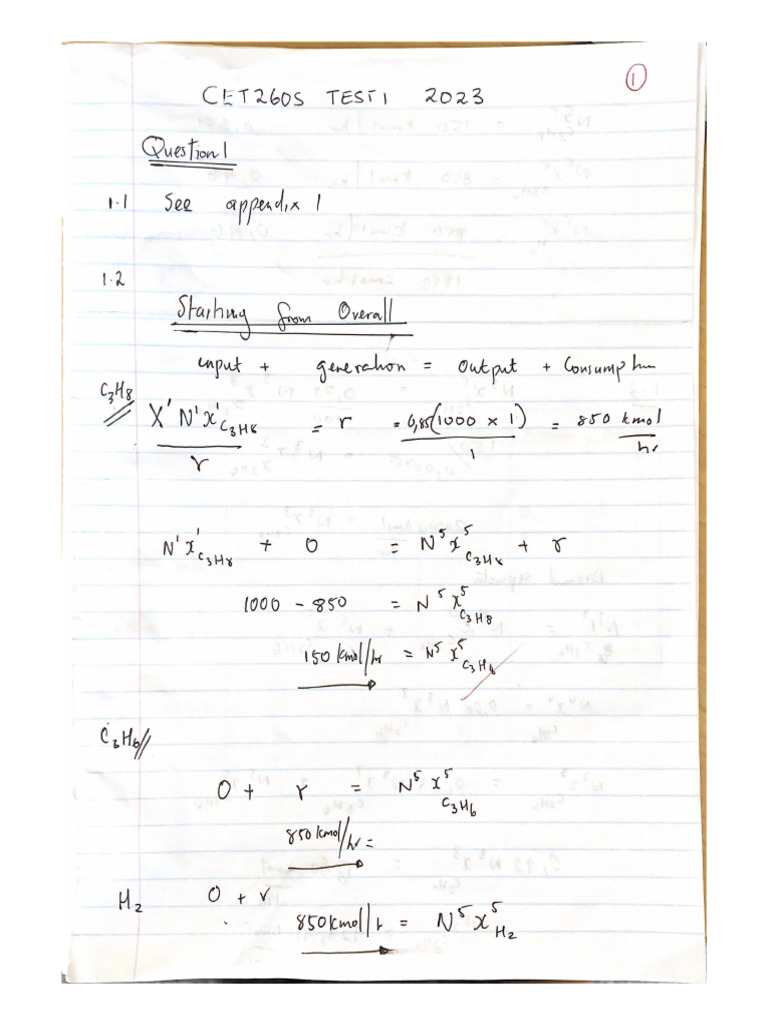 1
CET260S TEST 1 2023
Question 1
1.1 See appendix 1
1.2
Starting from Overall
input + generation = output + Consumption
C₃H₈
X' N' x'C₃H₈ / r = r = 0,85(1000 × 1) / 1 = 850 kmol/hr
N' x'C₃H₈ + 0 = N⁵ x⁵C₃H₈ + r
1000 - 850 = N⁵ x⁵C₃H₈
150 kmol/hr = N⁵ x⁵C₃H₈
C₃H₆
0 + r = N⁵ x⁵C₃H₆
850 kmol/hr =
H₂ 0 + r
850 kmol/h = N⁵ x⁵H₂